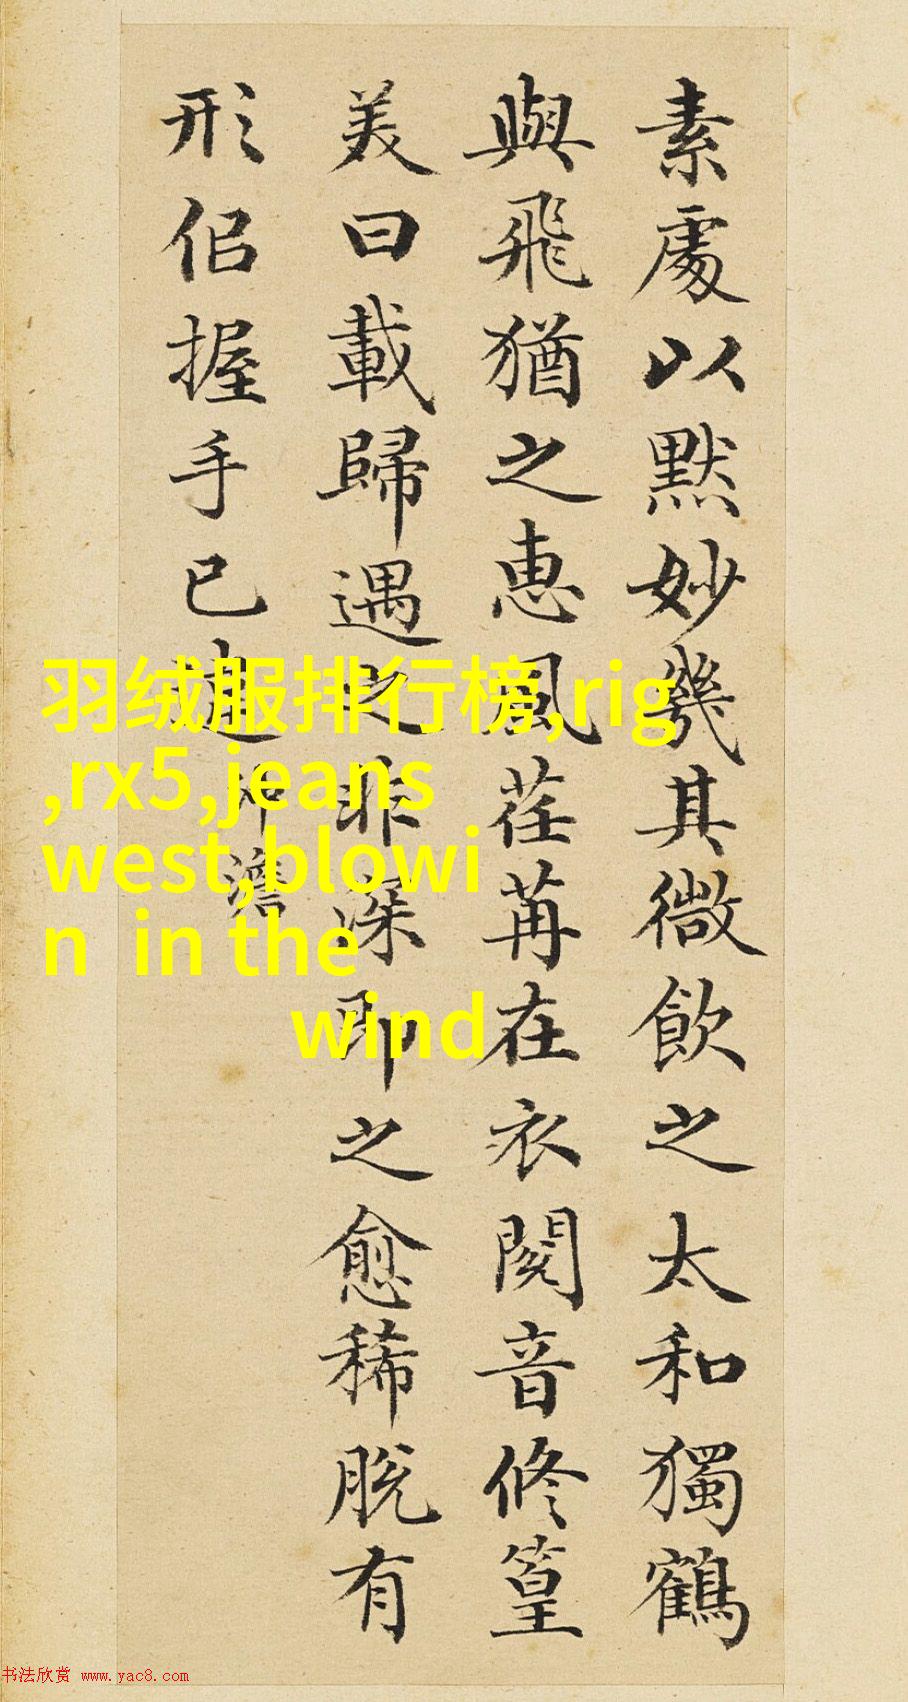 素處以默妙幾其微飲之太和獨鶴
與飛猶之惠風荏苒在衣閱音修篁
美曰載歸遇之非深即之愈稀脫有
形佀握手已違
沖澹
羽绒服排行榜,rig
,rx5,jeans
west,blowi
n in the
wind
书法欣赏 www.yac8.com